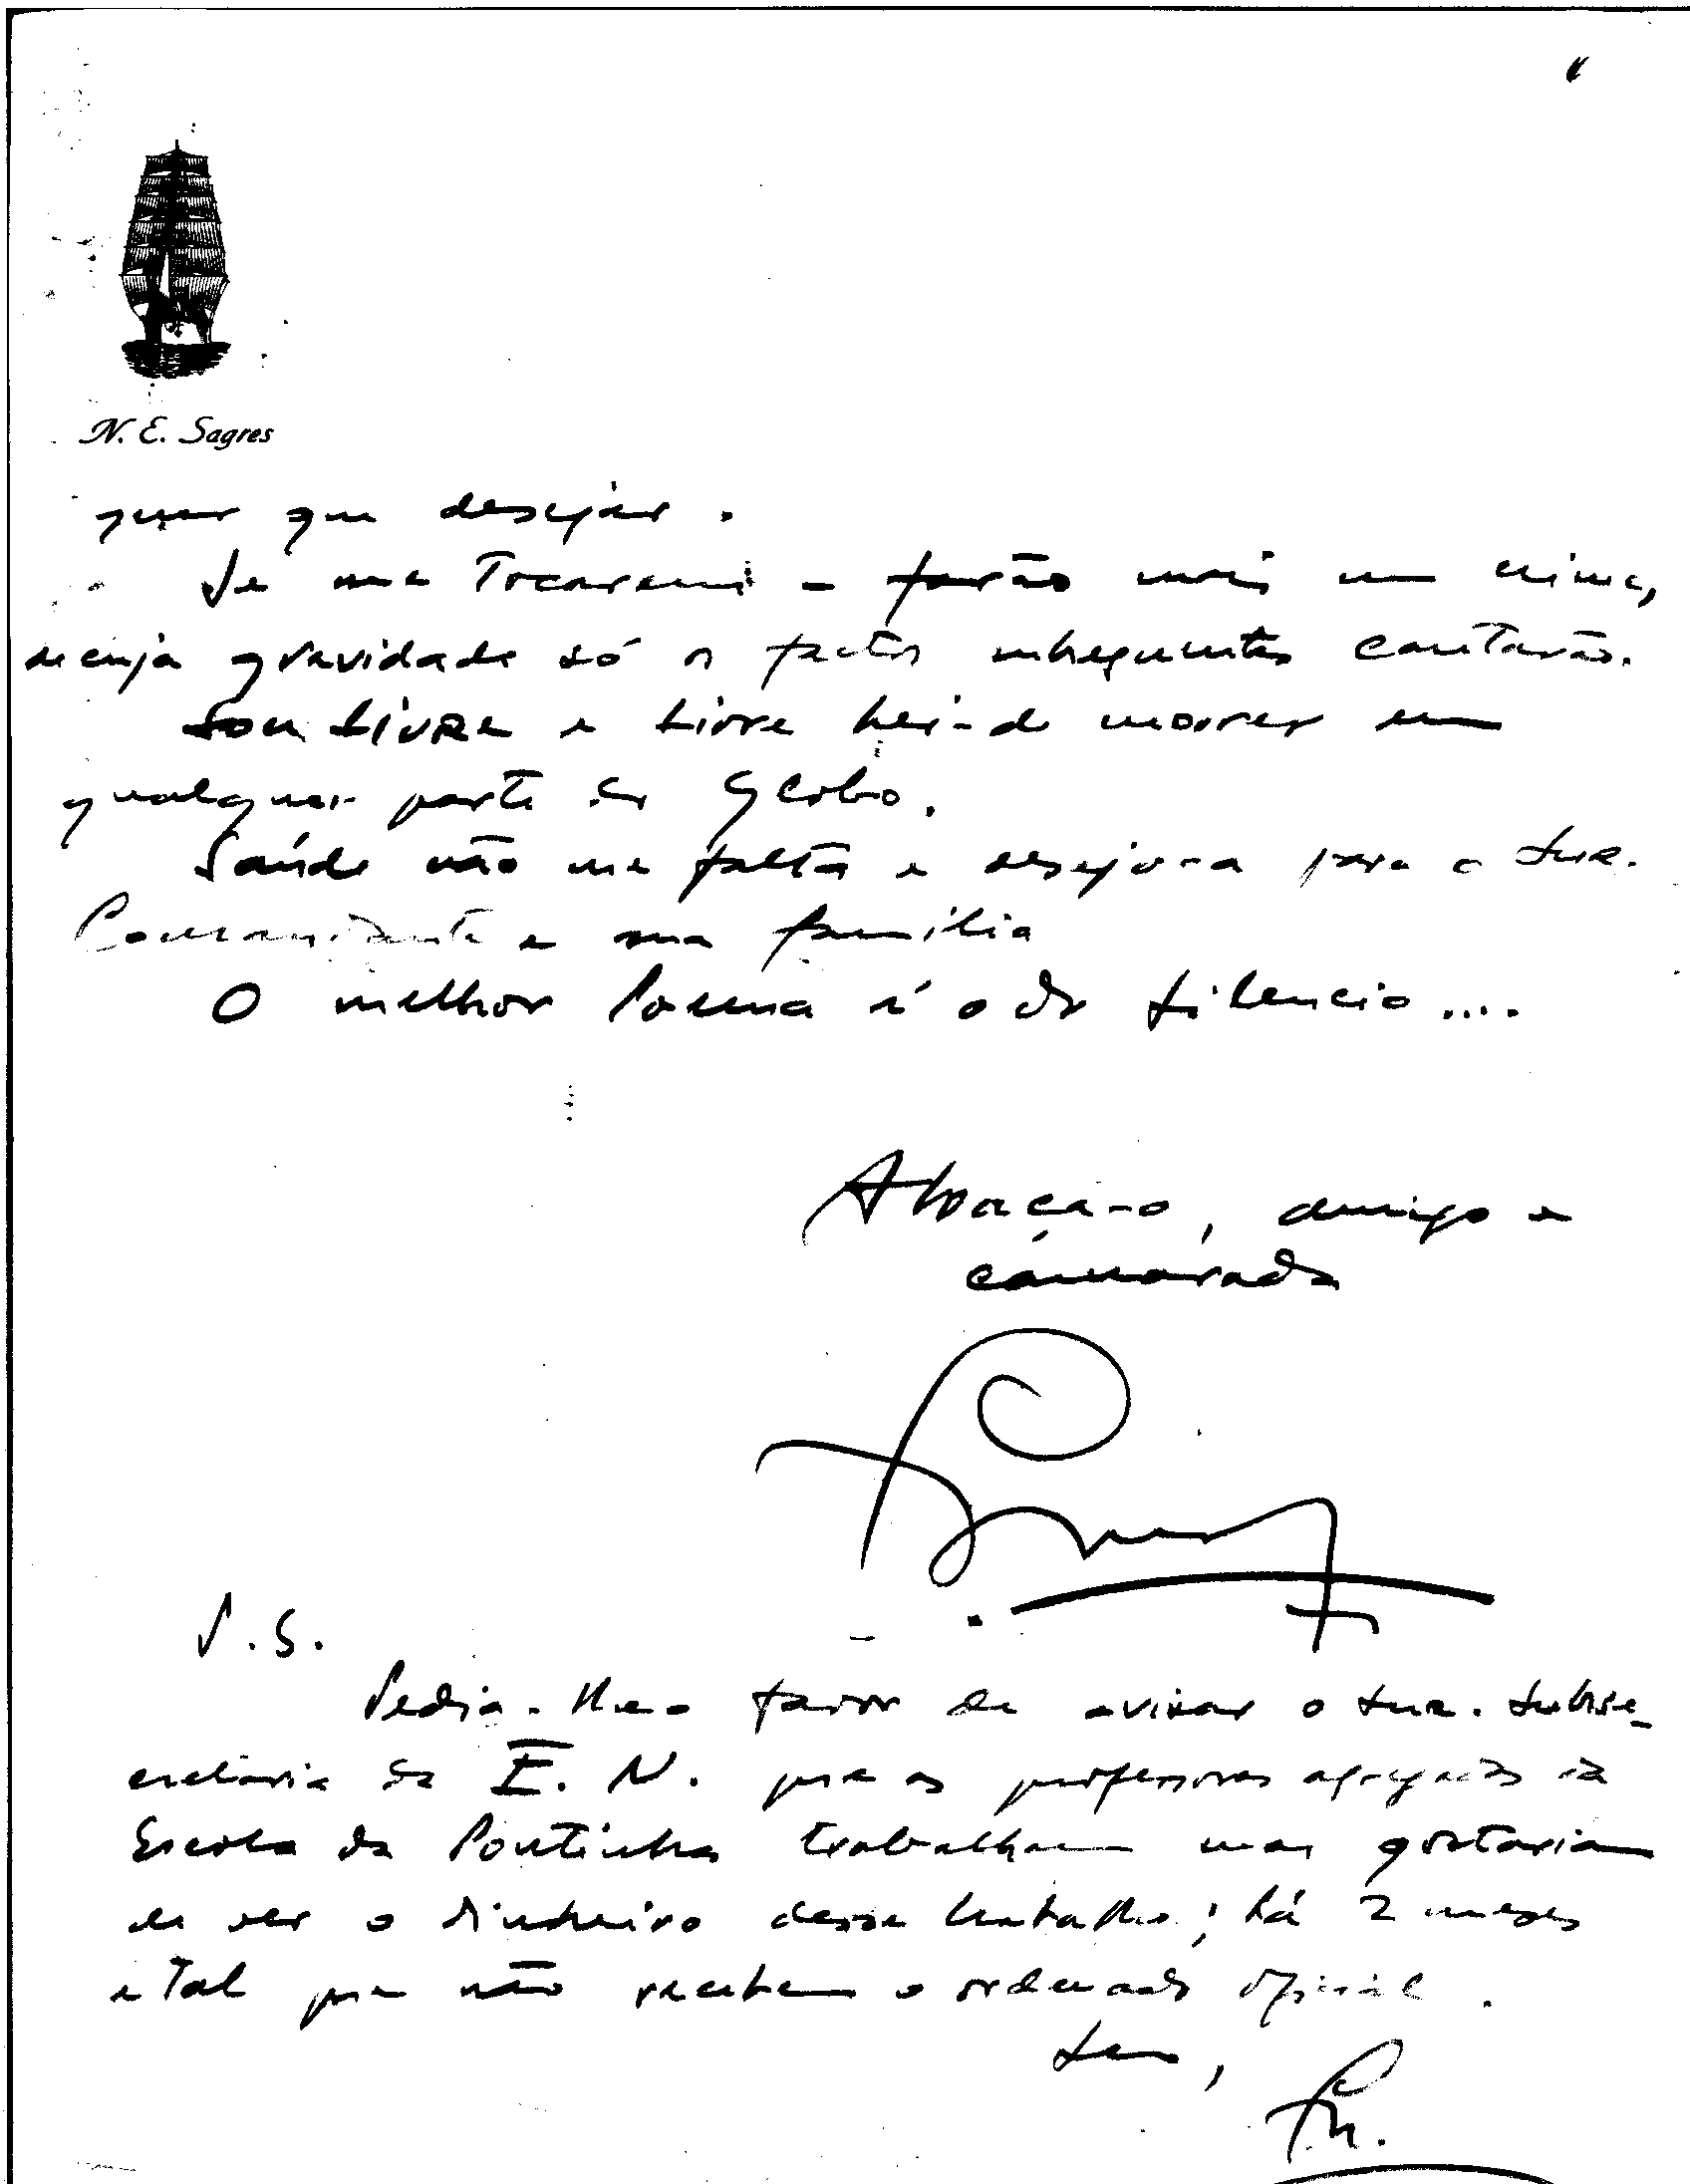 N. E. Sagres
quer que desejar.
Se me Tocarem – farão mais um crime,
de cuja gravidade só os factos subsequentes contarão.
Sou Livre e Livre hei-de morrer em
qualquer parte do Globo.
Saúde não me falta e desejo-a para o Snr.
Comandante e sua família
O melhor Poema é o do Silencio....
Abraça-o, amigo e
camarada
P.S.
Pedia-lhe o favor de avisar o Snr. Subse-
cretário da E. N. que os professores agregados à
Escola da Pontinha trabalham mas gostariam
de ver o dinheiro desse trabalho; há 2 meses
e Tal que não recebem o ordenado oficial.
Seu,